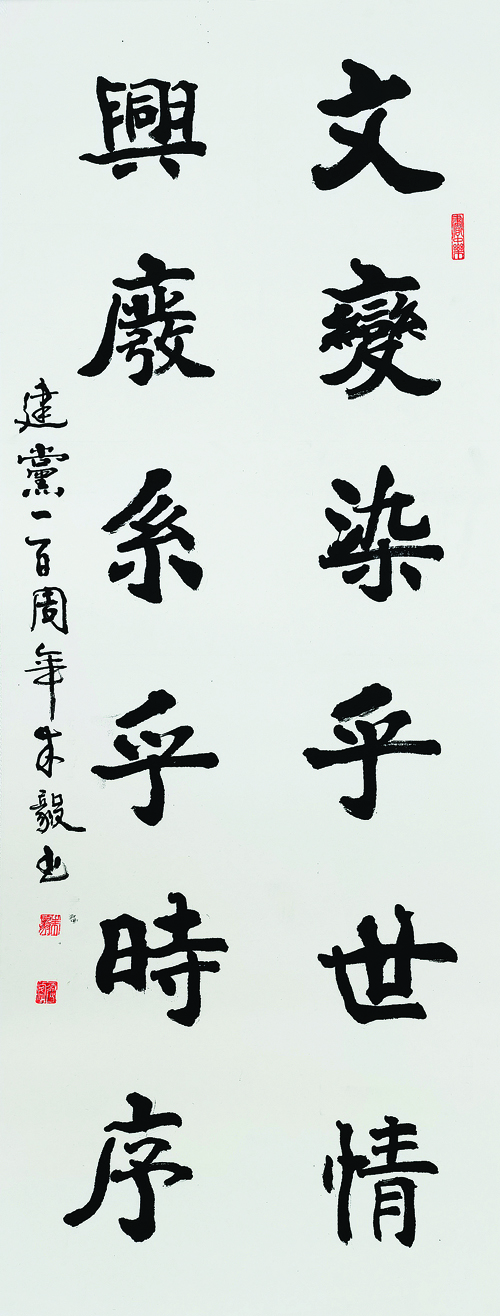 文變染乎世情
興廢系乎時序
建黨一百周年朱毅书